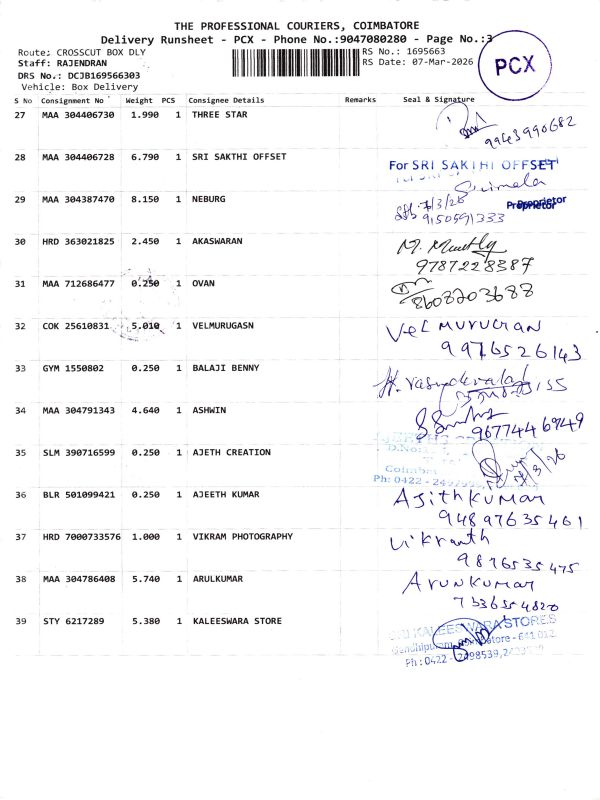 THE PROFESSIONAL COURIERS, COIMBATORE
Delivery Runsheet - PCX - Phone No.:9047080280 - Page No.:3
Route: CROSSCUT BOX DLY RS No.: 1695663
Staff: RAJENDRAN RS Date: 07-Mar-2026
PCX
DRS No.: DCJB169566303
Vehicle: Box Delivery
S No Consignment No Weight PCS Consignee Details Remarks Seal & Signature
27 MAA 304406730 1.990 1 THREE STAR
9943990682
28 MAA 304406728 6.790 1 SRI SAKTHI OFFSET For SRI SAKTHI OFFSET
Proprietor
29 MAA 304387470 8.150 1 NEBURG 7/3/26
9150591333
30 HRD 363021825 2.450 1 AKASWARAN
9787228387
31 MAA 712686477 0.250 1 OVAN
8608203688
32 COK 25610831 5.010 1 VELMURUGASN VELMURUGAN
9976526143
33 GYM 1550802 0.250 1 BALAJI BENNY
34 MAA 304791343 4.640 1 ASHWIN
9677446949
35 SLM 390716599 0.250 1 AJETH CREATION
Coimbat
Ph: 0422 -
36 BLR 501099421 0.250 1 AJEETH KUMAR Ajithkumar
94897635461
37 HRD 7000733576 1.000 1 VIKRAM PHOTOGRAPHY Vikranth
9876535475
38 MAA 304786408 5.740 1 ARULKUMAR Arunkumar
7336554820
39 STY 6217289 5.380 1 KALEESWARA STORE SRI KALEESWARA STORES
Gandhipuram, Coimbatore - 641 012.
Ph : 0422 - 2498539,